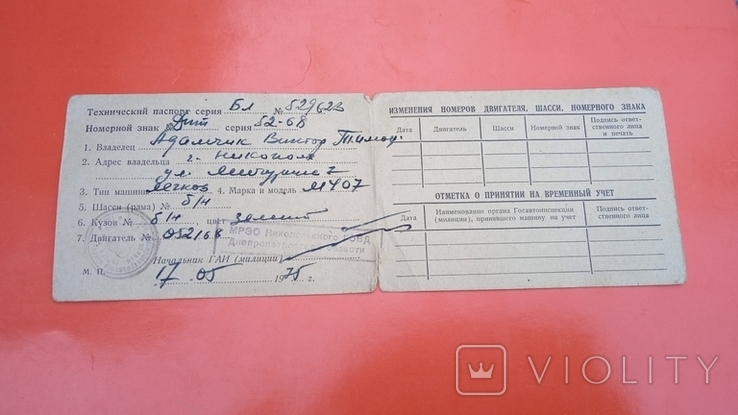 Технический паспорт серия Бл № 529623
Номерной знак серия 52-68
1. Владелец Адамчик Виктор Тимоф.
2. Адрес владельца г. Никополь
ул.
3. Тип машины Легков. 4. Марка и модель М407
5. Шасси (рама) № б/н
6. Кузов № б/н, цвет
7. Двигатель № 052168
МРЭО Никопольского ГОВД
Днепропетровской области
Начальник ГАИ (милиции)
М. П. 17 05 1975 г.
ИЗМЕНЕНИЯ НОМЕРОВ ДВИГАТЕЛЯ, ШАССИ, НОМЕРНОГО ЗНАКА
Дата Двигатель Шасси Номерной знак Подпись ответ-
ственного лица
и печать
ОТМЕТКА О ПРИНЯТИИ НА ВРЕМЕННЫЙ УЧЕТ
Дата Наименование органа Госавтоинспекции
(милиции), принявшего машину на учет
Подпись ответ-
ственного лица
VIOLITY